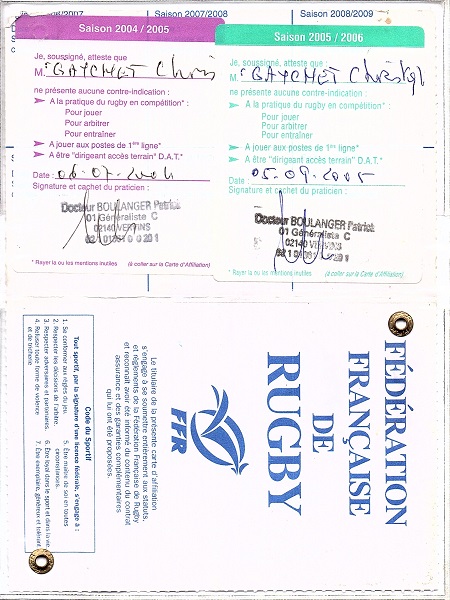 Saison 2007/2008
Saison 2008/2009
Saison 2004 / 2005
Je, soussigné, atteste que
M. GAYCHET Chris
ne présente aucune contre-indication :
➤ A la pratique du rugby en compétition* :
Pour jouer
Pour arbitrer
Pour entraîner
➤ A jouer aux postes de 1ère ligne*
➤ A être "dirigeant accès terrain" D.A.T.*
Date : 06.07.2004
Signature et cachet du praticien :
Docteur BOULANGER Patrick
01 Généraliste C
02140 VERVINS
* Rayer la ou les mentions inutiles (à coller sur la Carte d'Affiliation)
Saison 2005 / 2006
Je, soussigné, atteste que
M. GAYCHET
ne présente aucune contre-indication :
➤ A la pratique du rugby en compétition* :
Pour jouer
Pour arbitrer
Pour entraîner
➤ A jouer aux postes de 1ère ligne*
➤ A être "dirigeant accès terrain" D.A.T.*
Date : 05.09.2005
Signature et cachet du praticien :
Docteur BOULANGER Patrick
01 Généraliste C
02140 VERVINS
* Rayer la ou les mentions inutiles (à coller sur la Carte d'Affiliation)
FÉDÉRATION
FRANÇAISE
DE
RUGBY
FFR
Le titulaire de la présente carte d'affiliation
s'engage à se soumettre entièrement aux statuts,
et règlements de la Fédération Française de Rugby
et reconnaît avoir été informé du contenu du contrat
assurance et des garanties complémentaires
qui lui ont été proposées.
Code du Sportif
Tout sportif, par la signature d'une licence fédérale, s'engage à :
1. Se conformer aux règles du jeu.
2. Respecter les décisions de l'arbitre.
3. Respecter adversaires et partenaires.
4. Refuser toute forme de violence
et de tricherie
5. Être maître de soi en toutes
circonstances.
6. Être loyal dans le sport et dans la vie.
7. Être exemplaire, généreux et tolérant